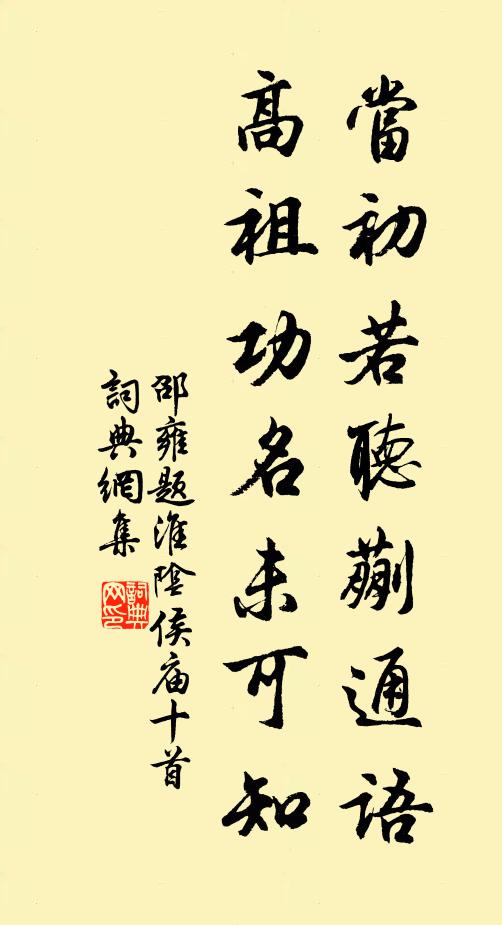 當初若聽蒯通語
高祖功名未可知
邵雍題淮陰侯庙十首
詞典網集
詞典
网印